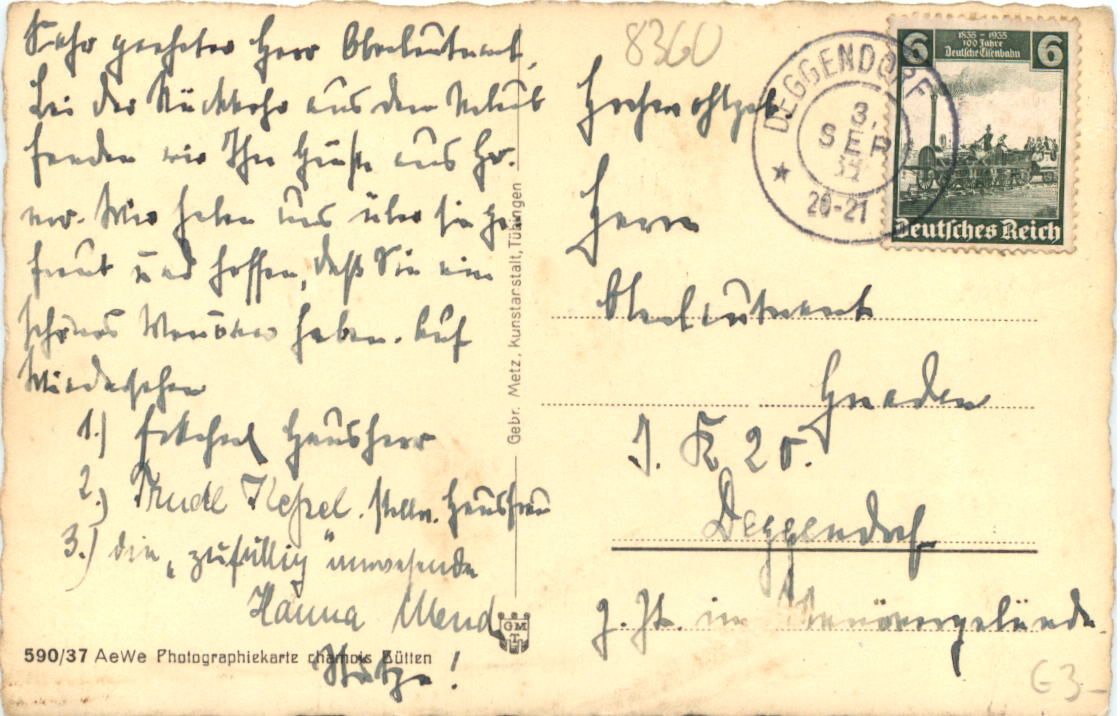 Sehr geehrter Herr Oberleutnant,
bei der Rückkehr aus dem Urlaub
fanden wir Ihre Grüße aus
vor. Wir haben uns über sie ge-
freut und hoffen, daß Sie ein
schönes Manöver haben. Auf
Wiedersehen
1.) Hausherr
2.) Trudl stellv. Hausfrau
3.) die „zufällig" anwesende
Hanna
!
Gebr. Metz, Kunstanstalt, Tübingen
GM
T
590/37 AeWe Photographiekarte chamois Bütten
8360
DEGGENDORF
3.
SEP
35
20-21
6 1835 - 1935 6
100 Jahre
Deutsche Eisenbahn
Deutsches Reich
Hochwohlgeb.
Herrn
Oberleutnant
J. R. 20.
Deggendorf
z. Zt. im Manövergelände.